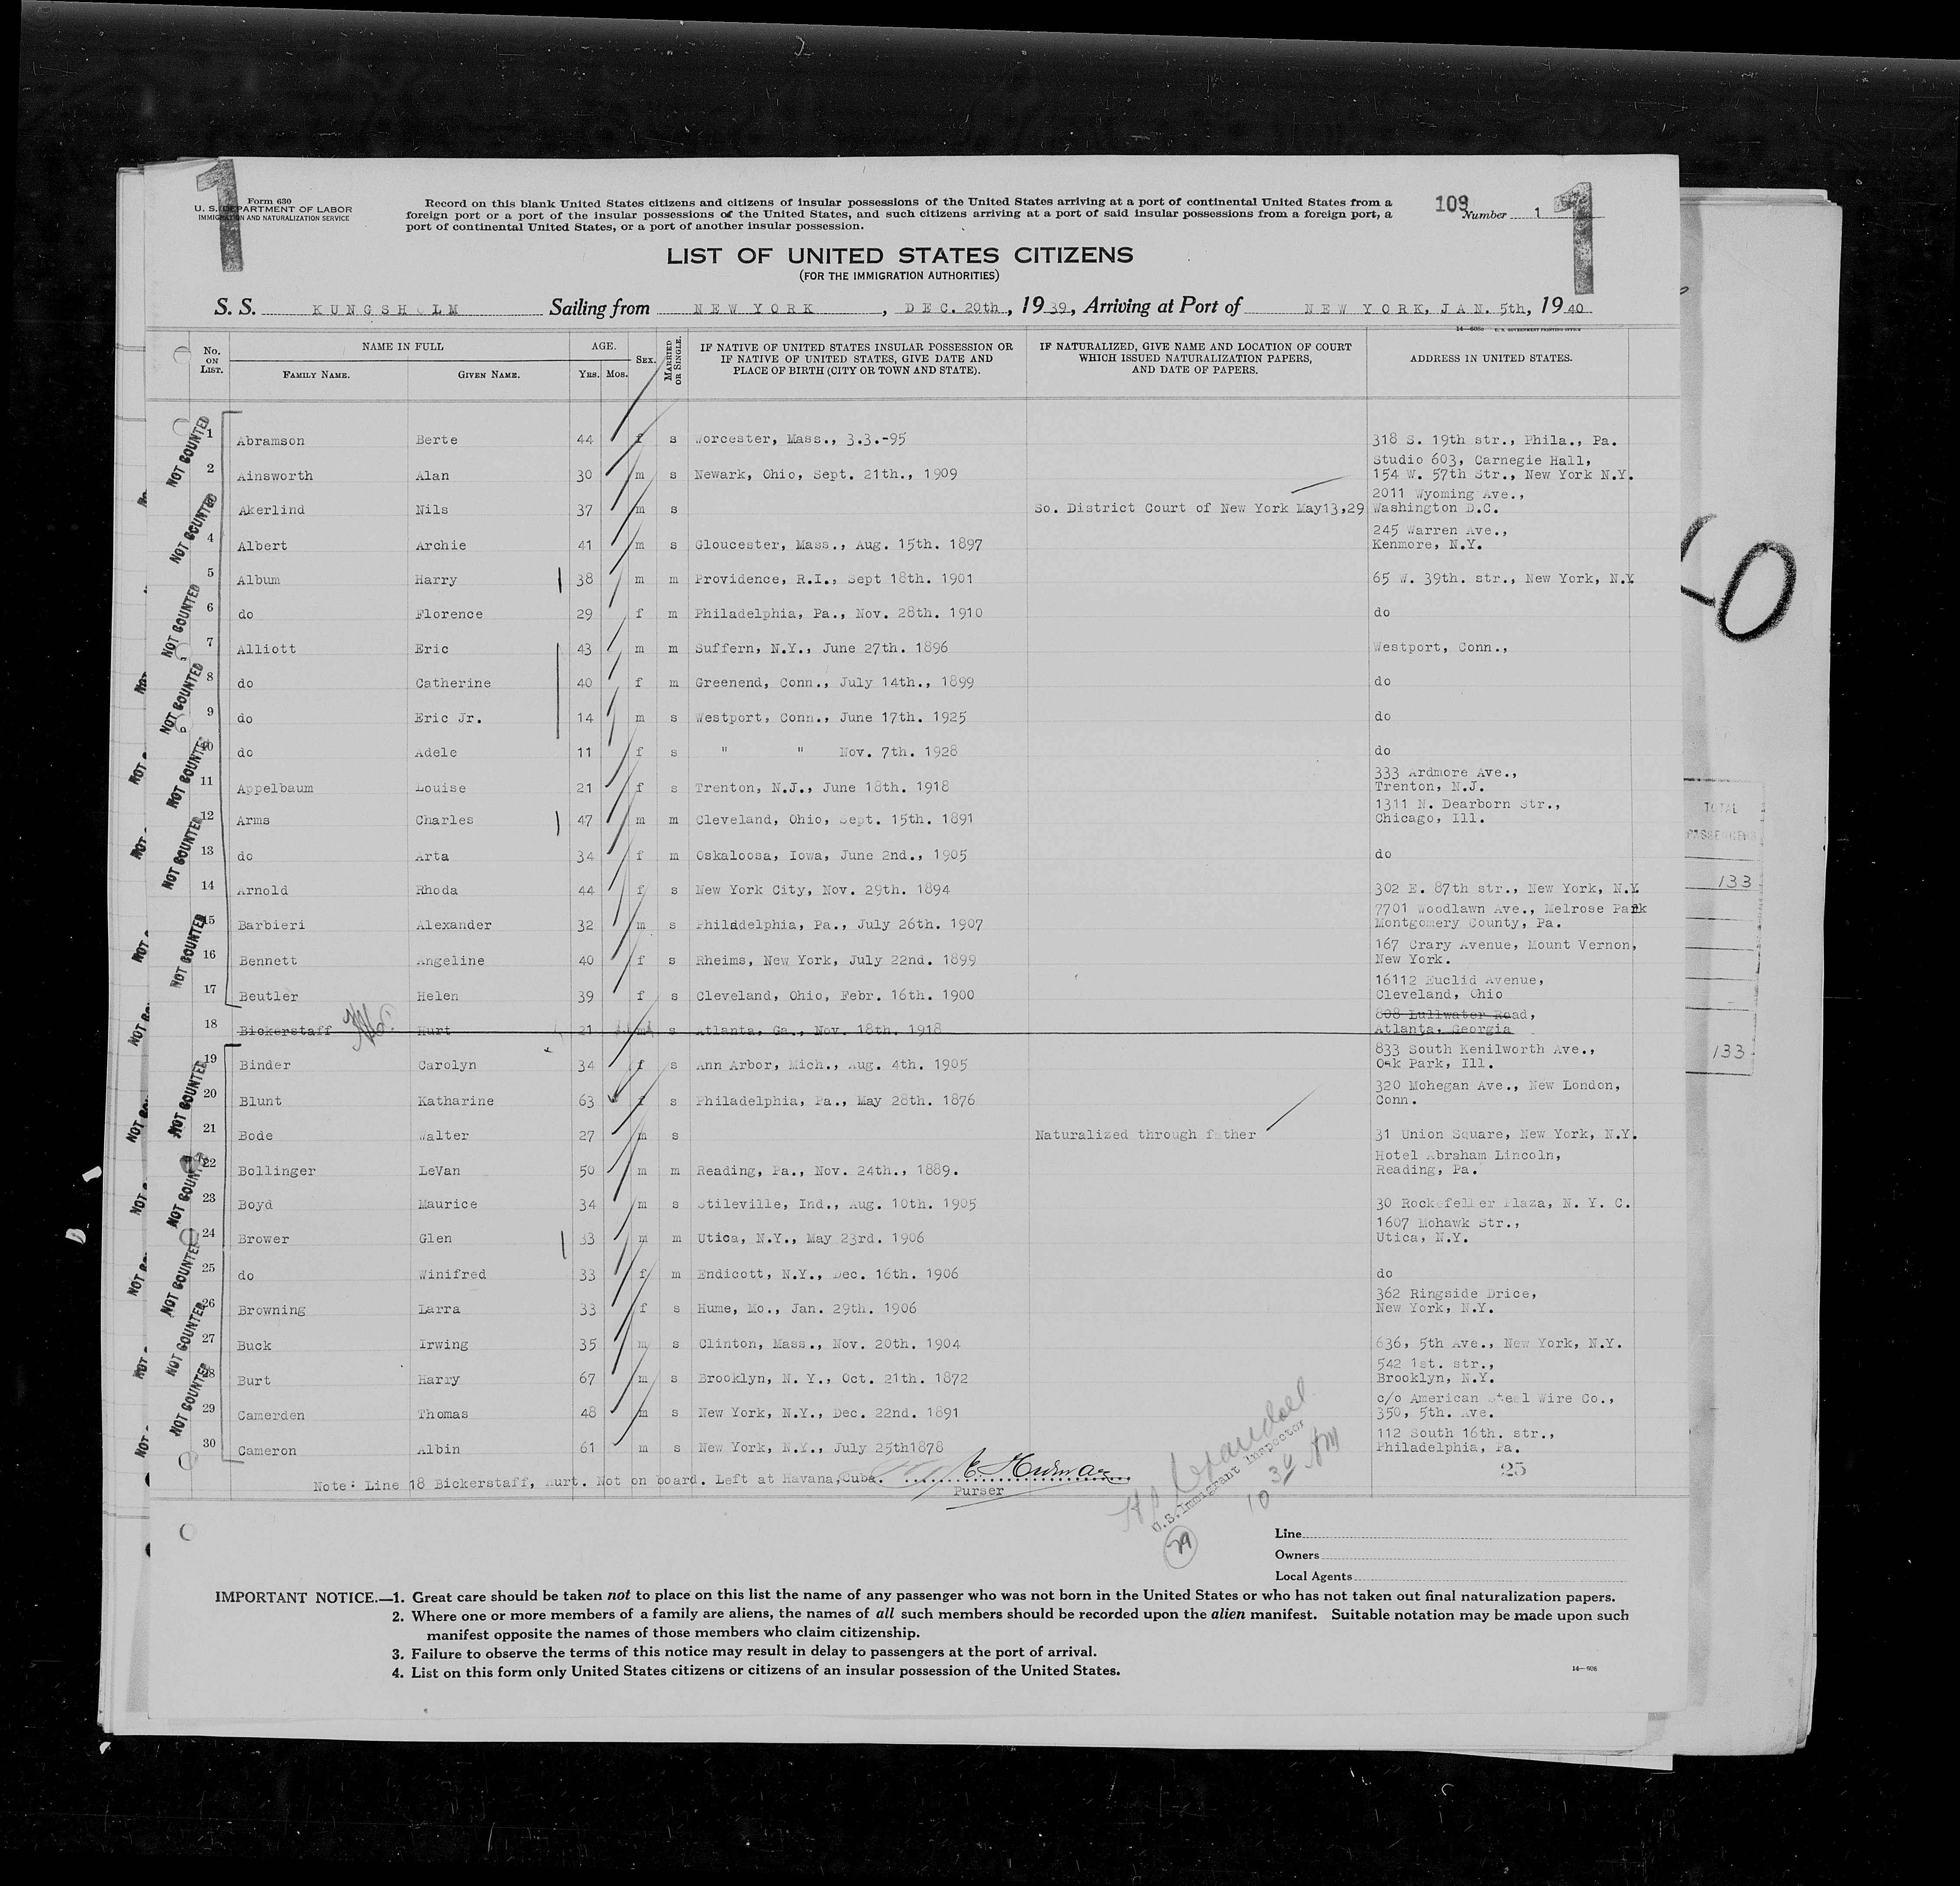 1
Form 630
U. S. DEPARTMENT OF LABOR
IMMIGRATION AND NATURALIZATION SERVICE
Record on this blank United States citizens and citizens of insular possessions of the United States arriving at a port of continental United States from a
foreign port or a port of the insular possessions of the United States, and such citizens arriving at a port of said insular possessions from a foreign port, a
port of continental United States, or a port of another insular possession.
109
Number 1
1
LIST OF UNITED STATES CITIZENS
(FOR THE IMMIGRATION AUTHORITIES)
S. S. KUNGSHOLM Sailing from NEW YORK, DEC. 20th, 1939, Arriving at Port of NEW YORK, JAN. 5th, 1940
No. ON LIST. NAME IN FULL FAMILY NAME. GIVEN NAME. AGE. YRS. MOS. SEX. MARRIED OR SINGLE. IF NATIVE OF UNITED STATES INSULAR POSSESSION OR IF NATIVE OF UNITED STATES, GIVE DATE AND PLACE OF BIRTH (CITY OR TOWN AND STATE). IF NATURALIZED, GIVE NAME AND LOCATION OF COURT WHICH ISSUED NATURALIZATION PAPERS, AND DATE OF PAPERS. ADDRESS IN UNITED STATES.
NOT COUNTED
1 Abramson Berte 44 f s Worcester, Mass., 3.3.-95 318 S. 19th str., Phila., Pa.
2 Ainsworth Alan 30 m s Newark, Ohio, Sept. 21th., 1909 Studio 603, Carnegie Hall,
154 W. 57th Str., New York N.Y.
Akerlind Nils 37 m s So. District Court of New York May13,29 2011 Wyoming Ave.,
Washington D.C.
4 Albert Archie 41 m s Gloucester, Mass., Aug. 15th. 1897 245 Warren Ave.,
Kenmore, N.Y.
5 Album Harry 38 m m Providence, R.I., Sept 18th. 1901 65 W. 39th. str., New York, N.Y
6 do Florence 29 f m Philadelphia, Pa., Nov. 28th. 1910 do
7 Alliott Eric 43 m m Suffern, N.Y., June 27th. 1896 Westport, Conn.,
8 do Catherine 40 f m Greenend, Conn., July 14th., 1899 do
9 do Eric Jr. 14 m s Westport, Conn., June 17th. 1925 do
10 do Adele 11 f s " " Nov. 7th. 1928 do
11 Appelbaum Louise 21 f s Trenton, N.J., June 18th. 1918 333 Ardmore Ave.,
Trenton, N.J.
12 Arms Charles 47 m m Cleveland, Ohio, Sept. 15th. 1891 1311 N. Dearborn Str.,
Chicago, Ill.
13 do Arta 34 f m Oskaloosa, Iowa, June 2nd., 1905 do
14 Arnold Rhoda 44 f s New York City, Nov. 29th. 1894 302 E. 87th str., New York, N.Y.
15 Barbieri Alexander 32 m s Philadelphia, Pa., July 26th. 1907 7701 Woodlawn Ave., Melrose Park
Montgomery County, Pa.
16 Bennett Angeline 40 f s Rheims, New York, July 22nd. 1899 167 Crary Avenue, Mount Vernon,
New York.
17 Beutler Helen 39 f s Cleveland, Ohio, Febr. 16th. 1900 16112 Euclid Avenue,
Cleveland, Ohio
18 Bickerstaff Hurt 21 m s Atlanta, Ga., Nov. 18th. 1918 808 Lullwater Road,
Atlanta, Georgia
19 Binder Carolyn 34 f s Ann Arbor, Mich., Aug. 4th. 1905 833 South Kenilworth Ave.,
Oak Park, Ill.
20 Blunt Katharine 63 f s Philadelphia, Pa., May 28th. 1876 320 Mohegan Ave., New London,
Conn.
21 Bode Walter 27 m s Naturalized through father 31 Union Square, New York, N.Y.
22 Bollinger LeVan 50 m m Reading, Pa., Nov. 24th., 1889. Hotel Abraham Lincoln,
Reading, Pa.
23 Boyd Maurice 34 m s Stileville, Ind., Aug. 10th. 1905 30 Rockefeller Plaza, N. Y. C.
24 Brower Glen 33 m m Utica, N.Y., May 23rd. 1906 1607 Mohawk Str.,
Utica, N.Y.
25 do Winifred 33 f m Endicott, N.Y., Dec. 16th. 1906 do
26 Browning Larra 33 f s Hume, Mo., Jan. 29th. 1906 362 Ringside Drice,
New York, N.Y.
27 Buck Irwing 35 m s Clinton, Mass., Nov. 20th. 1904 636, 5th Ave., New York, N.Y.
28 Burt Harry 67 m s Brooklyn, N. Y., Oct. 21th. 1872 542 1st. str.,
Brooklyn, N.Y.
29 Camerden Thomas 48 m s New York, N.Y., Dec. 22nd. 1891 c/o American Steel Wire Co.,
350, 5th. Ave.
30 Cameron Albin 61 m s New York, N.Y., July 25th1878 112 South 16th. str.,
Philadelphia, Pa.
25
Note: Line 18 Bickerstaff, Hurt. Not on board. Left at Havana, Cuba.
Purser
U.S. Immigrant Inspector
10 30 AM
29
Line
Owners
Local Agents
IMPORTANT NOTICE.—1. Great care should be taken not to place on this list the name of any passenger who was not born in the United States or who has not taken out final naturalization papers.
2. Where one or more members of a family are aliens, the names of all such members should be recorded upon the alien manifest. Suitable notation may be made upon such
manifest opposite the names of those members who claim citizenship.
3. Failure to observe the terms of this notice may result in delay to passengers at the port of arrival.
4. List on this form only United States citizens or citizens of an insular possession of the United States.
TOTAL
PASSENGERS
133
133